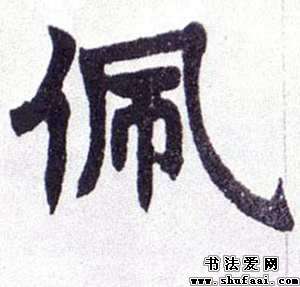 佩
书法爱网
www.shufaai.com